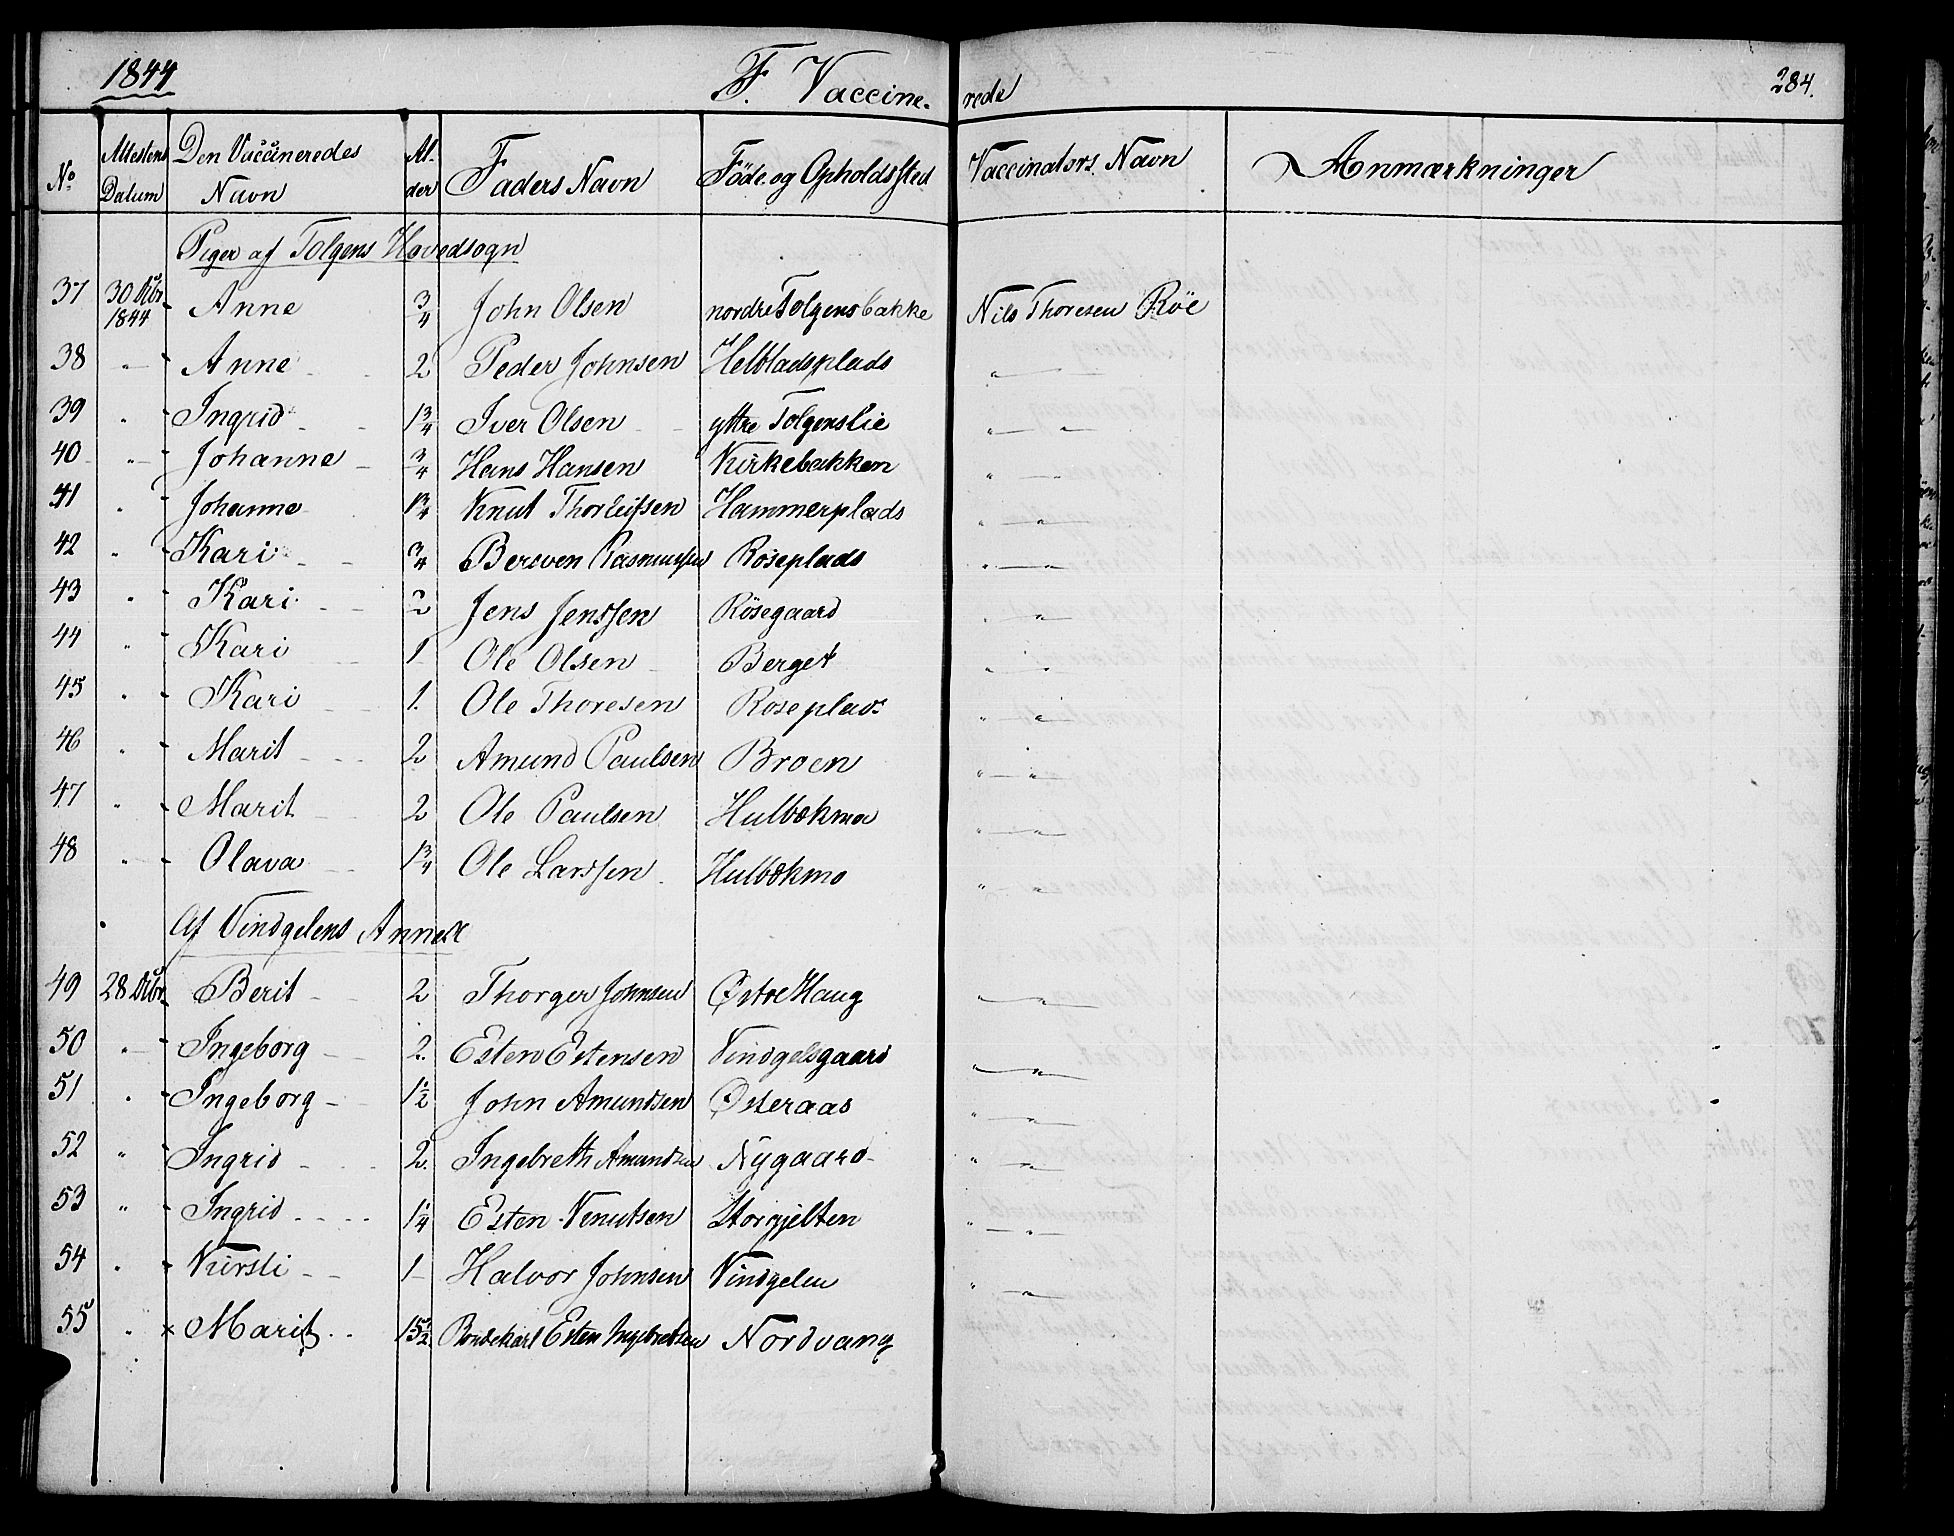 1844 F. Vaccine- rede 284.
No Attestens Datum Den Vaccineredes Navn Al- der Faders Navn Föde og Opholdssted Vaccinators Navn Anmærkninger
Piger af Tolgens Hovedsogn
37 30 Dcbr 1844 Anne 3/4 John Olsen nordre Tolgensbakke Nils Thoresen Röe
38 " Anne 2 Peder Johnsen Helbladsplads " "
39 " Ingrid 1 3/4 Iver Olsen yttre Tolgenslie " "
40 " Johanne 3/4 Hans Hansen Kirkebakken " "
41 " Johanne 1 3/4 Knut Thorleifsen Hammerplads " "
42 " Kari 3/4 Bersven Rasmussen Röseplads " "
43 " Kari 2 Jens Jenssen Rösegaard " "
44 " Kari 1 Ole Olsen Berget " "
45 " Kari 1. Ole Thoresen Roseplads " "
46 " Marit 2 Amund Paulsen Broen " "
47 " Marit 2 Ole Paulsen Hulbækmo " "
48 " Olava 1 3/4 Ole Larssen Hulbækmo " "
Af Vindgelens Annex
49 28 Dcbr Berit 2 Thorger Johnsen Østre Haug " "
50 " Ingeborg 2. Esten Estensen Vindgelsgaard " "
51 " Ingeborg 1 1/2 John Amundsen Østeraas " "
52 " Ingrid 2. Ingebreth Amundsen Nygaard " "
53 " Ingrid 1 1/4 Esten Knutsen Storgjelten " "
54 " Kirsti 1 Halvor Johnsen Vindgelen " "
55 " x Marit 15 1/2 Bondekarl Esten Ingebretsen Nordvang